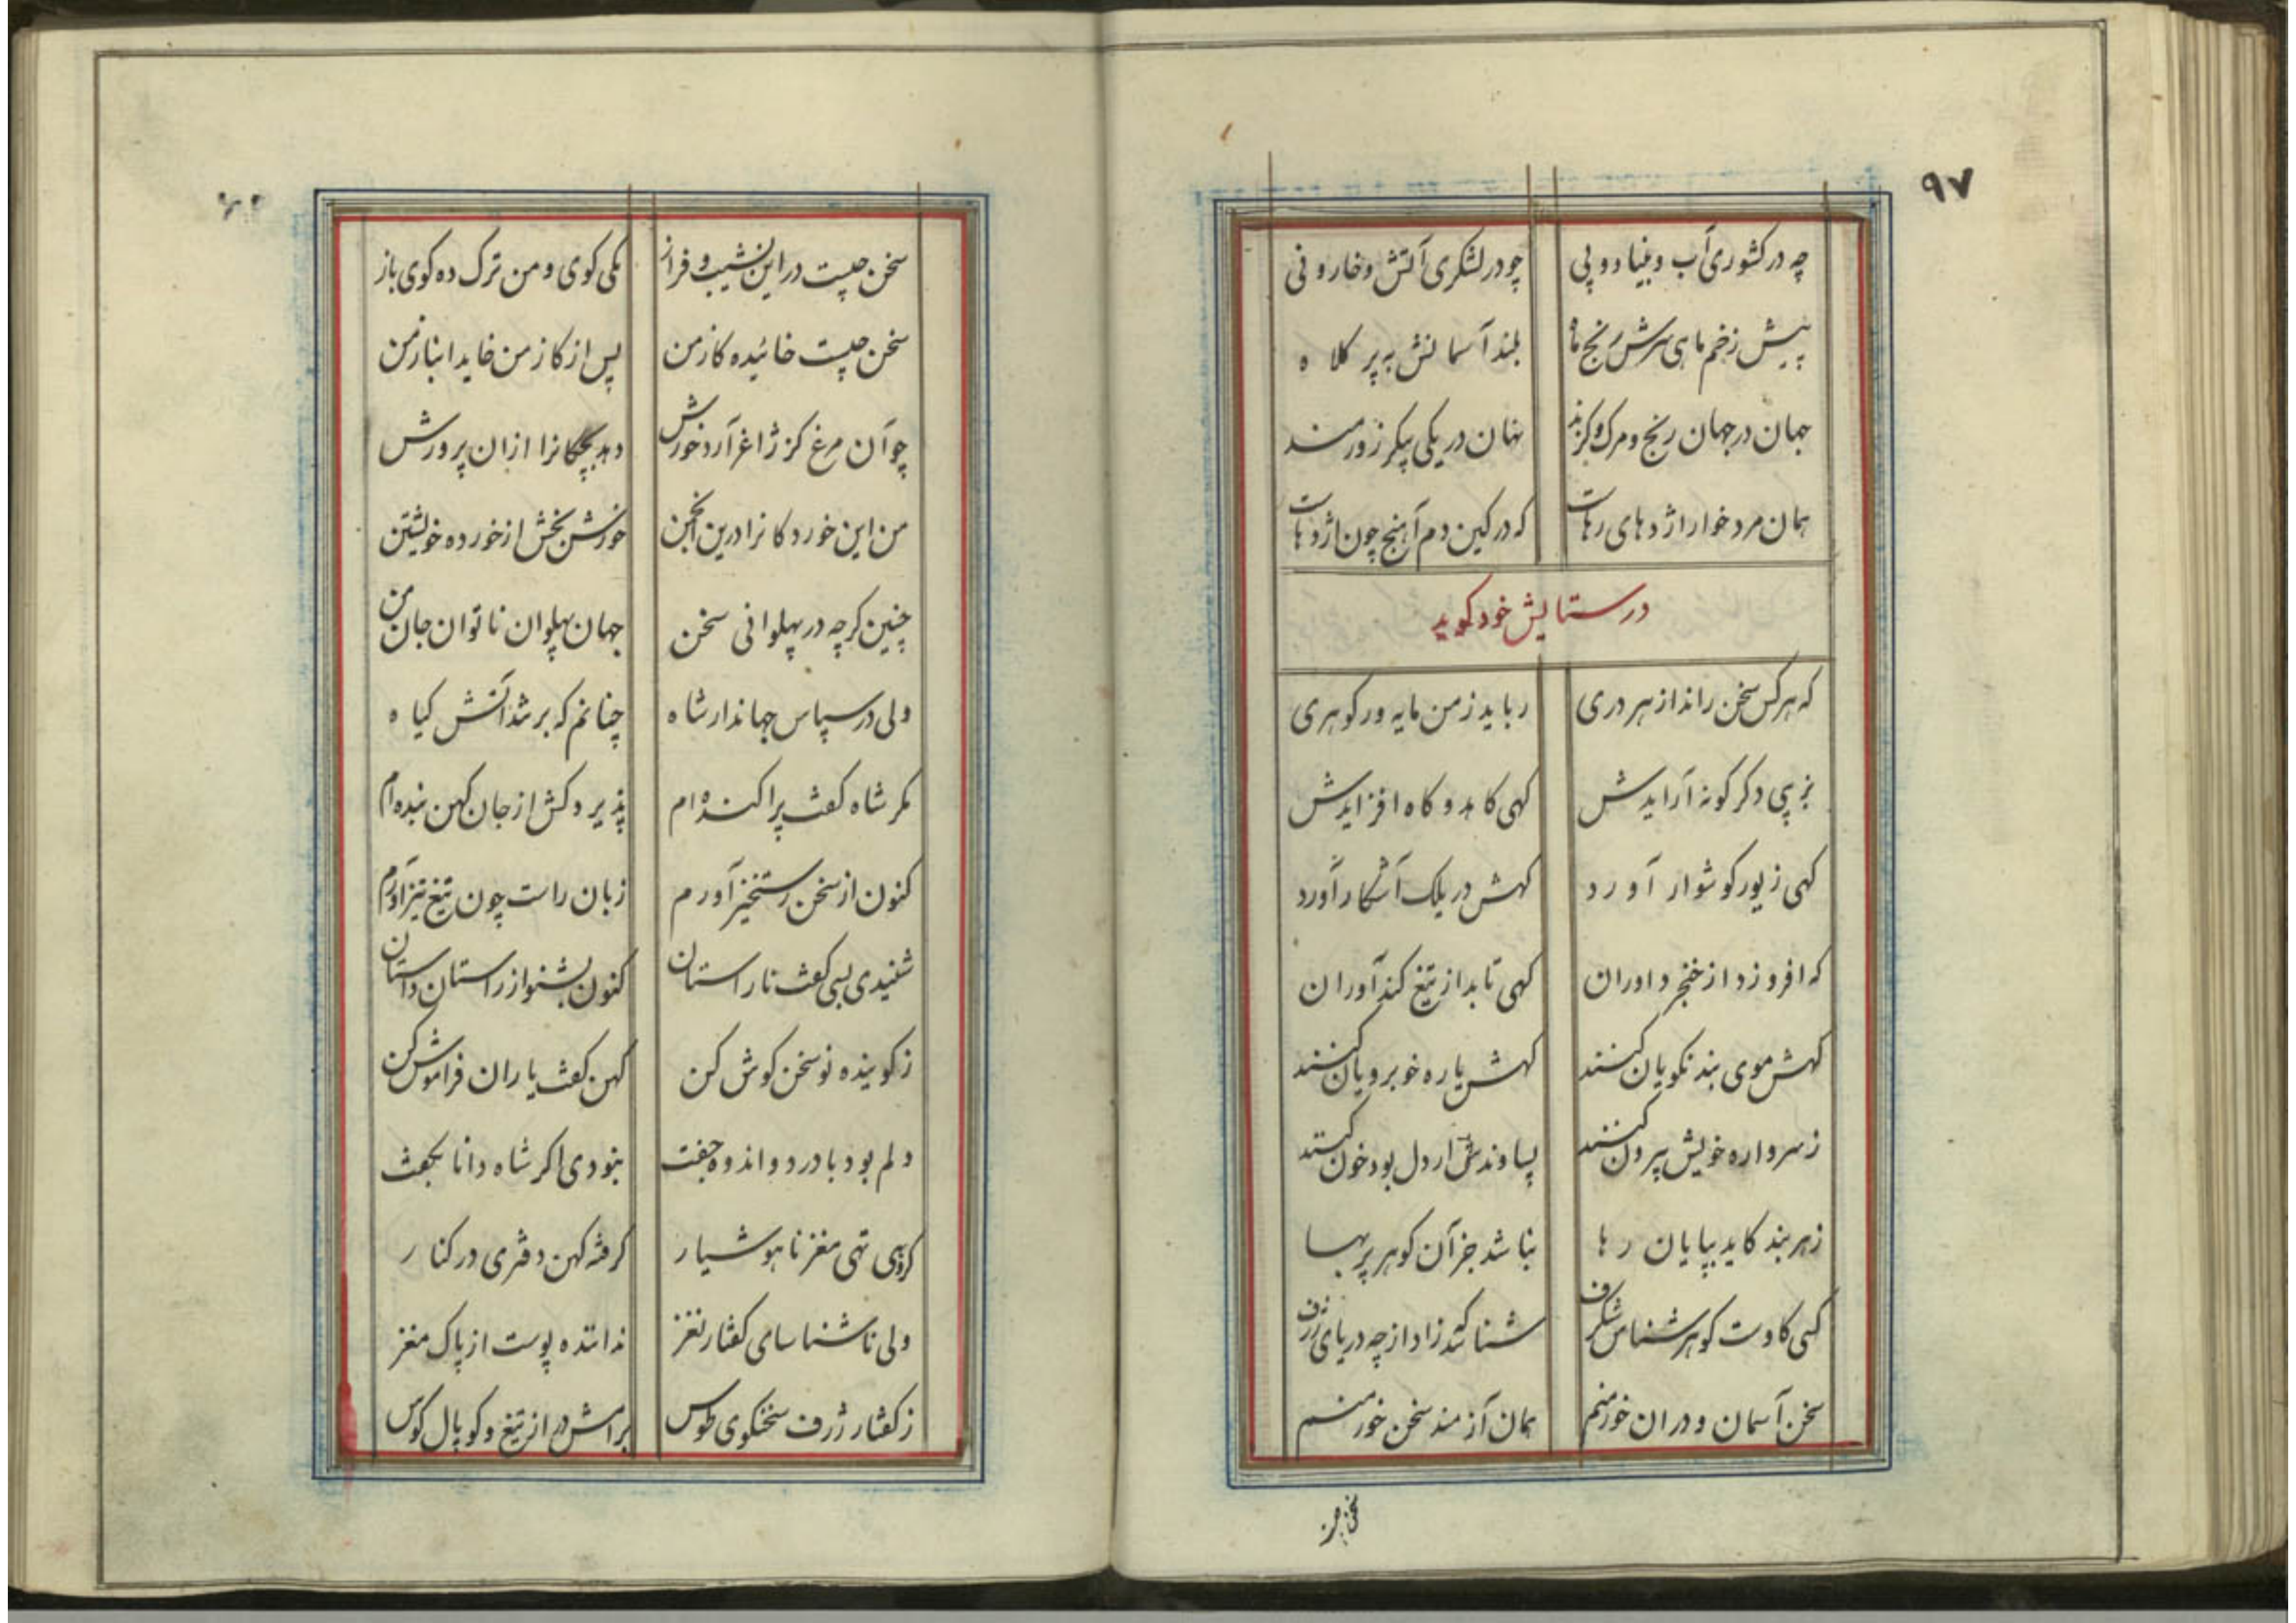 ۹۷
چه در کشوری آب و بنیاد و پی چو در لشکری آتش و خار و نی
پیش زخم ماهی سرش رنج ما بلند آسمانش به پر کلاه
جهان در جهان رنج و مرک و کزند نهان در یکی پیکر زورمند
همان مردخوار اژدهای رهاست که در کین دم آهنج چون اژدهاست
در ستایش خود کوید
که هر کس سخن راند از هر دری رباید ز من مایه ور کوهری
بزیبی دکر کونه آرایدش کهی کاهد و کاه افزایدش
کهی زیور کوشوار آورد کهش در یلک آشکار آورد
که افروزد از خنجر داوران کهی تابد از تیغ کندآوران
کهش موی بند نکویان کنند کهش یاره خوبرویان کنند
ز سرواره خویش بیرون کنند پساوندش ار دل بود خون کنند
ز هر بند کاید بپایان رها نباشد جز آن کوهر پربها
کسی کاوست کوهرشناس شکرف شناسد که زاد از چه دریای ژرف
سخن آسمان و در آن خور منم همان آزمند سخن خور منم
سخن چیست
سخن چیست در این نشیب و فراز یکی کوی و من ترک ده کوی باز
سخن چیست خائیده کاز من پس از کاز من خاید انباز من
چو آن مرغ کز ژاغر آرد خورش دهد بچکانرا ازان پرورش
من این خوردکانرا درین انجمن خورش بخش از خورده خویشتن
چنین کرچه در پهلوانی سخن جهان پهلوان ناتوان جان من
ولی در سپاس جهاندار شاه چنانم که بر شد آتش کیاه
مکر شاه کفت پراکنده ام پذیرد کش از جان کهن بنده ام
کنون از سخن رستخیز آورم زبان راست چون تیغ تیز آورم
شنیدی بسی کفت ناراستان کنون بشنو از راستان داستان
ز کوینده نو سخن کوش کن کهن کفت یاران فراموش کن
دلم بود با درد و اندوه جفت نبودی اکر شاه دانا بکفت
کروهی تهی مغز ناهوشیار کرفته کهن دفتری در کنار
ولی ناشناسای کفتار نغز ندانده پوست از پاک مغز
ز کفتار ژرف سخنکوی طوس برامش در از تیغ و کوپال کوس